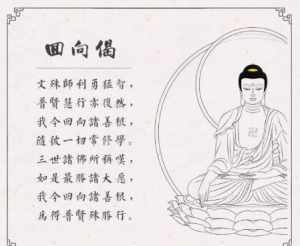 回向偈
文殊師利勇猛智，
普賢慧行亦復然，
我今回向諸善根，
隨彼一切常修學。
三世諸佛所稱嘆，
如是最勝諸大願，
我今回向諸善根，
為得普賢殊勝行。
卍